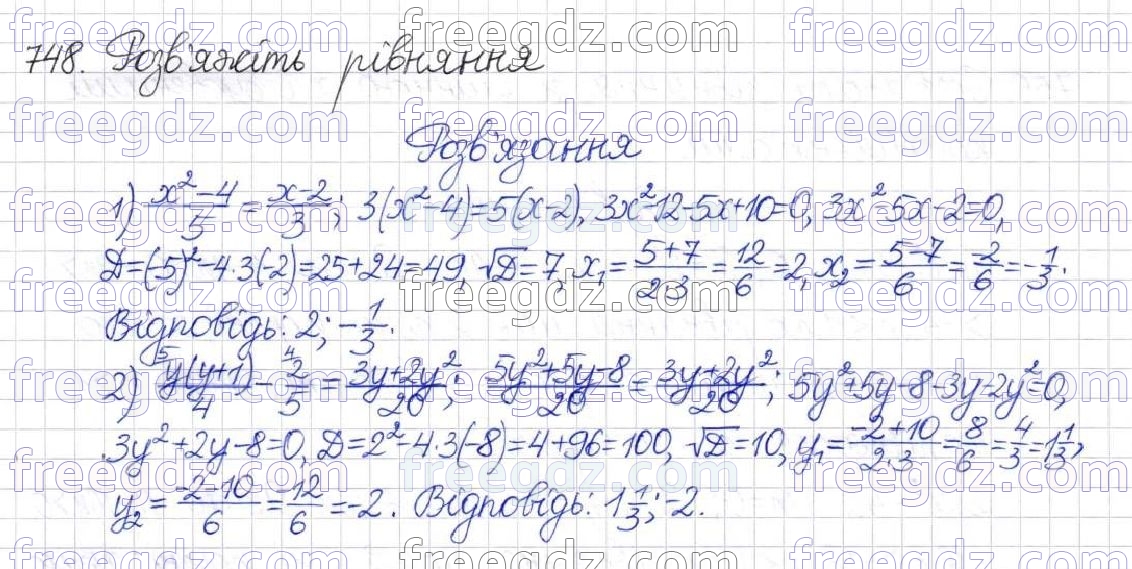 748. Розв'яжіть рівняння
Розв'язання
1) (x²-4)/5 = (x-2)/3; 3(x²-4)=5(x-2), 3x²-12-5x+10=0, 3x²-5x-2=0,
D=(-5)²-4·3(-2)=25+24=49, √D=7, x₁=(5+7)/(2·3)=12/6=2, x₂=(5-7)/6=-2/6=-1/3.
Відповідь: 2; -1/3.
2) ⁵y(y+1)/4 - ⁴2/5 = (3y+2y²)/20; (5y²+5y-8)/20 = (3y+2y²)/20; 5y²+5y-8-3y-2y²=0,
3y²+2y-8=0, D=2²-4·3(-8)=4+96=100, √D=10, y₁=(-2+10)/(2·3)=8/6=4/3=1 1/3,
y₂=(-2-10)/6=-12/6=-2. Відповідь: 1 1/3; -2.
freegdz.com freegdz.com freegdz.com